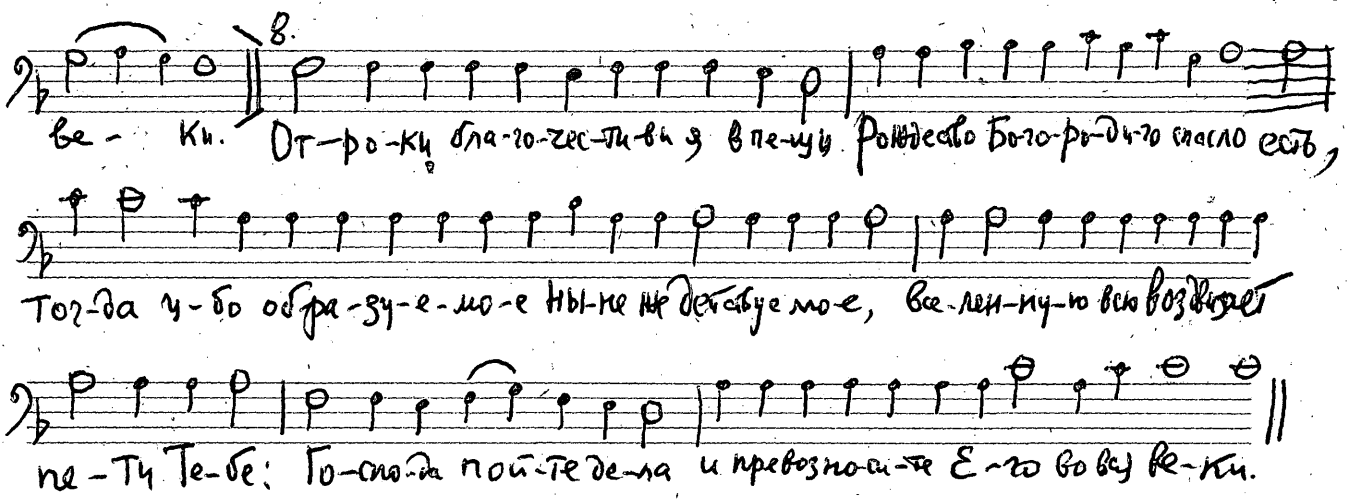 8.
ве - ки. От-ро-ки бла-го-чес-ти-вы я в пе-щи Рождество Бого-ро-ди-чо спасло есть,
Тог-да у-бо обра-зу-е-мо-е ны-не же действуемо-е, все-лен-ну-ю всю воздвизает
пе-ти Те-бе: Го-спо-да пой-те де-ла и превозно-си-те Е-го во вся ве-ки.